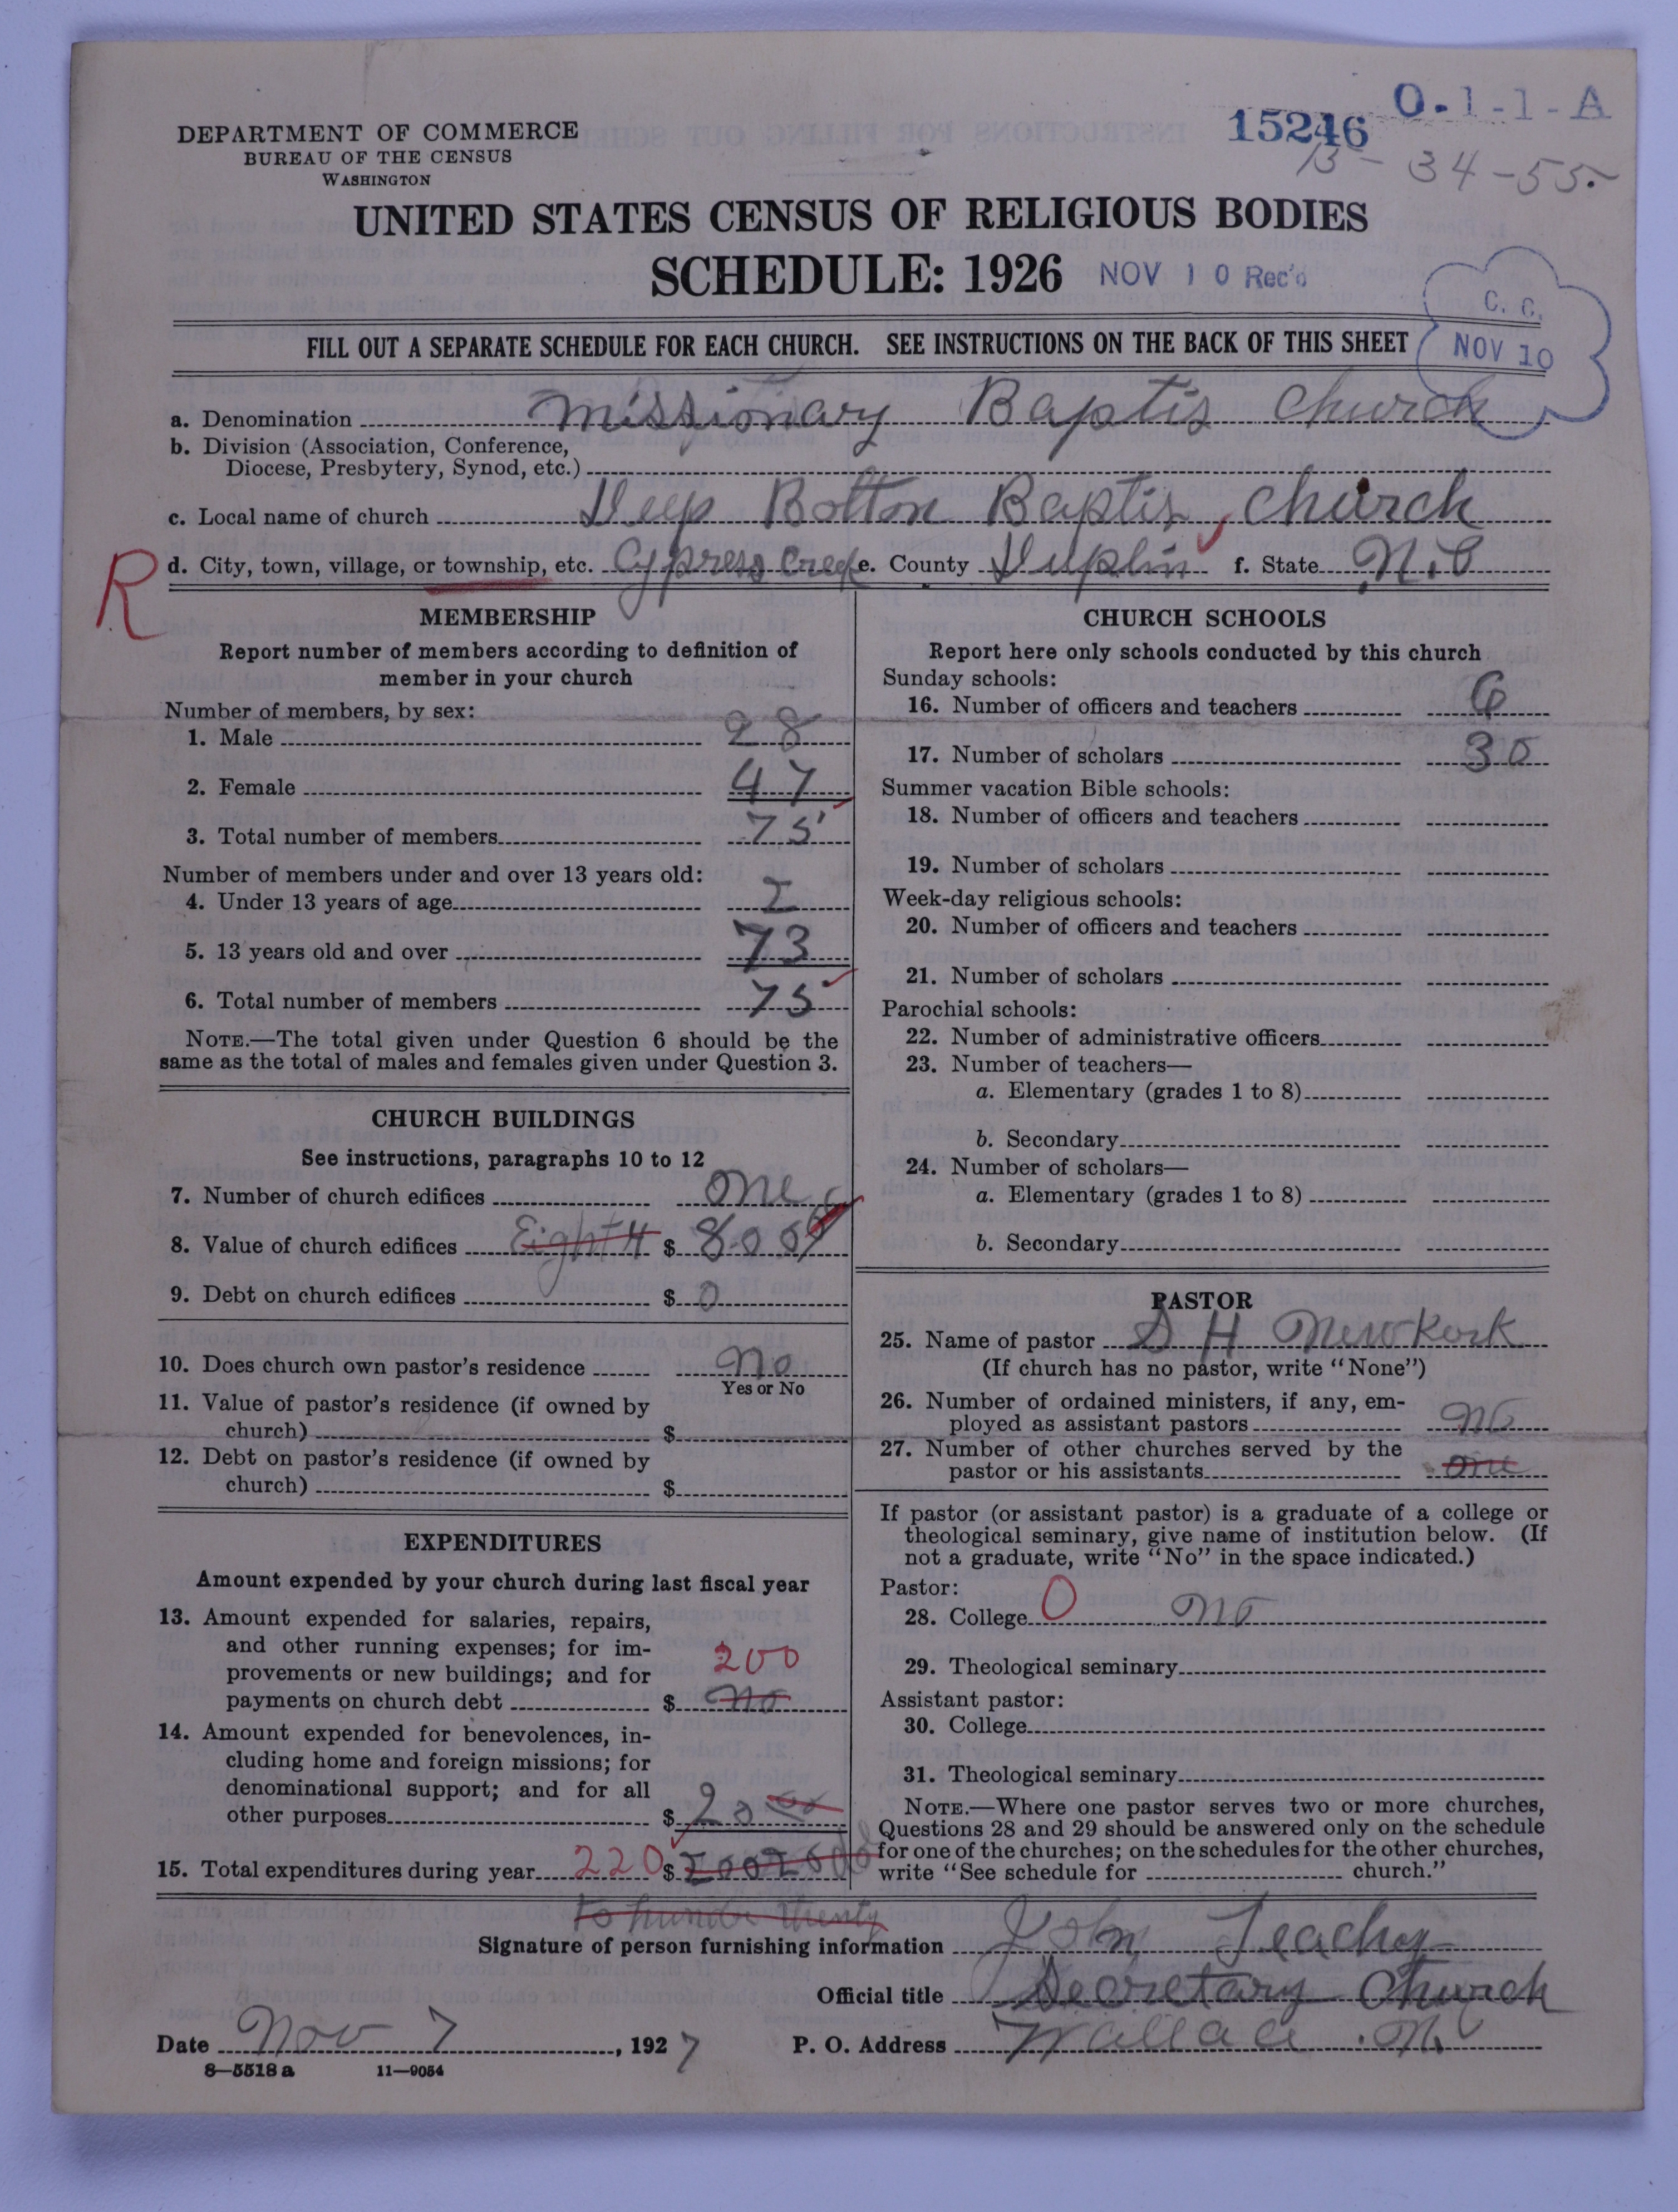 O-1-1-A
15246
13-34-55.
DEPARTMENT OF COMMERCE
BUREAU OF THE CENSUS
WASHINGTON
UNITED STATES CENSUS OF RELIGIOUS BODIES
SCHEDULE: 1926 NOV 10 Rec'd
C. C.
NOV 10
FILL OUT A SEPARATE SCHEDULE FOR EACH CHURCH. SEE INSTRUCTIONS ON THE BACK OF THIS SHEET
a. Denomination Missionary Baptis Church
b. Division (Association, Conference,
Diocese, Presbytery, Synod, etc.)
c. Local name of church Deep Botton Baptis Church
R d. City, town, village, or township, etc. Cypress Creek e. County Duplin f. State N.C
MEMBERSHIP
Report number of members according to definition of
member in your church
Number of members, by sex:
1. Male 28
2. Female 47
3. Total number of members 75
Number of members under and over 13 years old:
4. Under 13 years of age 2
5. 13 years old and over 73
6. Total number of members 75
NOTE.—The total given under Question 6 should be the
same as the total of males and females given under Question 3.
CHURCH BUILDINGS
See instructions, paragraphs 10 to 12
7. Number of church edifices one
8. Value of church edifices EightH $ 800
9. Debt on church edifices $ 0
10. Does church own pastor's residence No
Yes or No
11. Value of pastor's residence (if owned by
church) $
12. Debt on pastor's residence (if owned by
church) $
EXPENDITURES
Amount expended by your church during last fiscal year
13. Amount expended for salaries, repairs,
and other running expenses; for im-
provements or new buildings; and for 200
payments on church debt $ No
14. Amount expended for benevolences, in-
cluding home and foreign missions; for
denominational support; and for all
other purposes $ 20 00
15. Total expenditures during year 220 $
to hunde twenty
CHURCH SCHOOLS
Report here only schools conducted by this church
Sunday schools:
16. Number of officers and teachers 6
17. Number of scholars 30
Summer vacation Bible schools:
18. Number of officers and teachers
19. Number of scholars
Week-day religious schools:
20. Number of officers and teachers
21. Number of scholars
Parochial schools:
22. Number of administrative officers
23. Number of teachers—
a. Elementary (grades 1 to 8)
b. Secondary
24. Number of scholars—
a. Elementary (grades 1 to 8)
b. Secondary
PASTOR
25. Name of pastor S H Newkork
(If church has no pastor, write "None")
26. Number of ordained ministers, if any, em-
ployed as assistant pastors No
27. Number of other churches served by the
pastor or his assistants one
If pastor (or assistant pastor) is a graduate of a college or
theological seminary, give name of institution below. (If
not a graduate, write "No" in the space indicated.)
Pastor:
28. College O No
29. Theological seminary
Assistant pastor:
30. College
31. Theological seminary
NOTE.—Where one pastor serves two or more churches,
Questions 28 and 29 should be answered only on the schedule
for one of the churches; on the schedules for the other churches,
write "See schedule for church."
Signature of person furnishing information John Teachy
Official title Secretary Church
Date Nov 7, 1927 P. O. Address Wallace N C
8—5518 a 11—9054